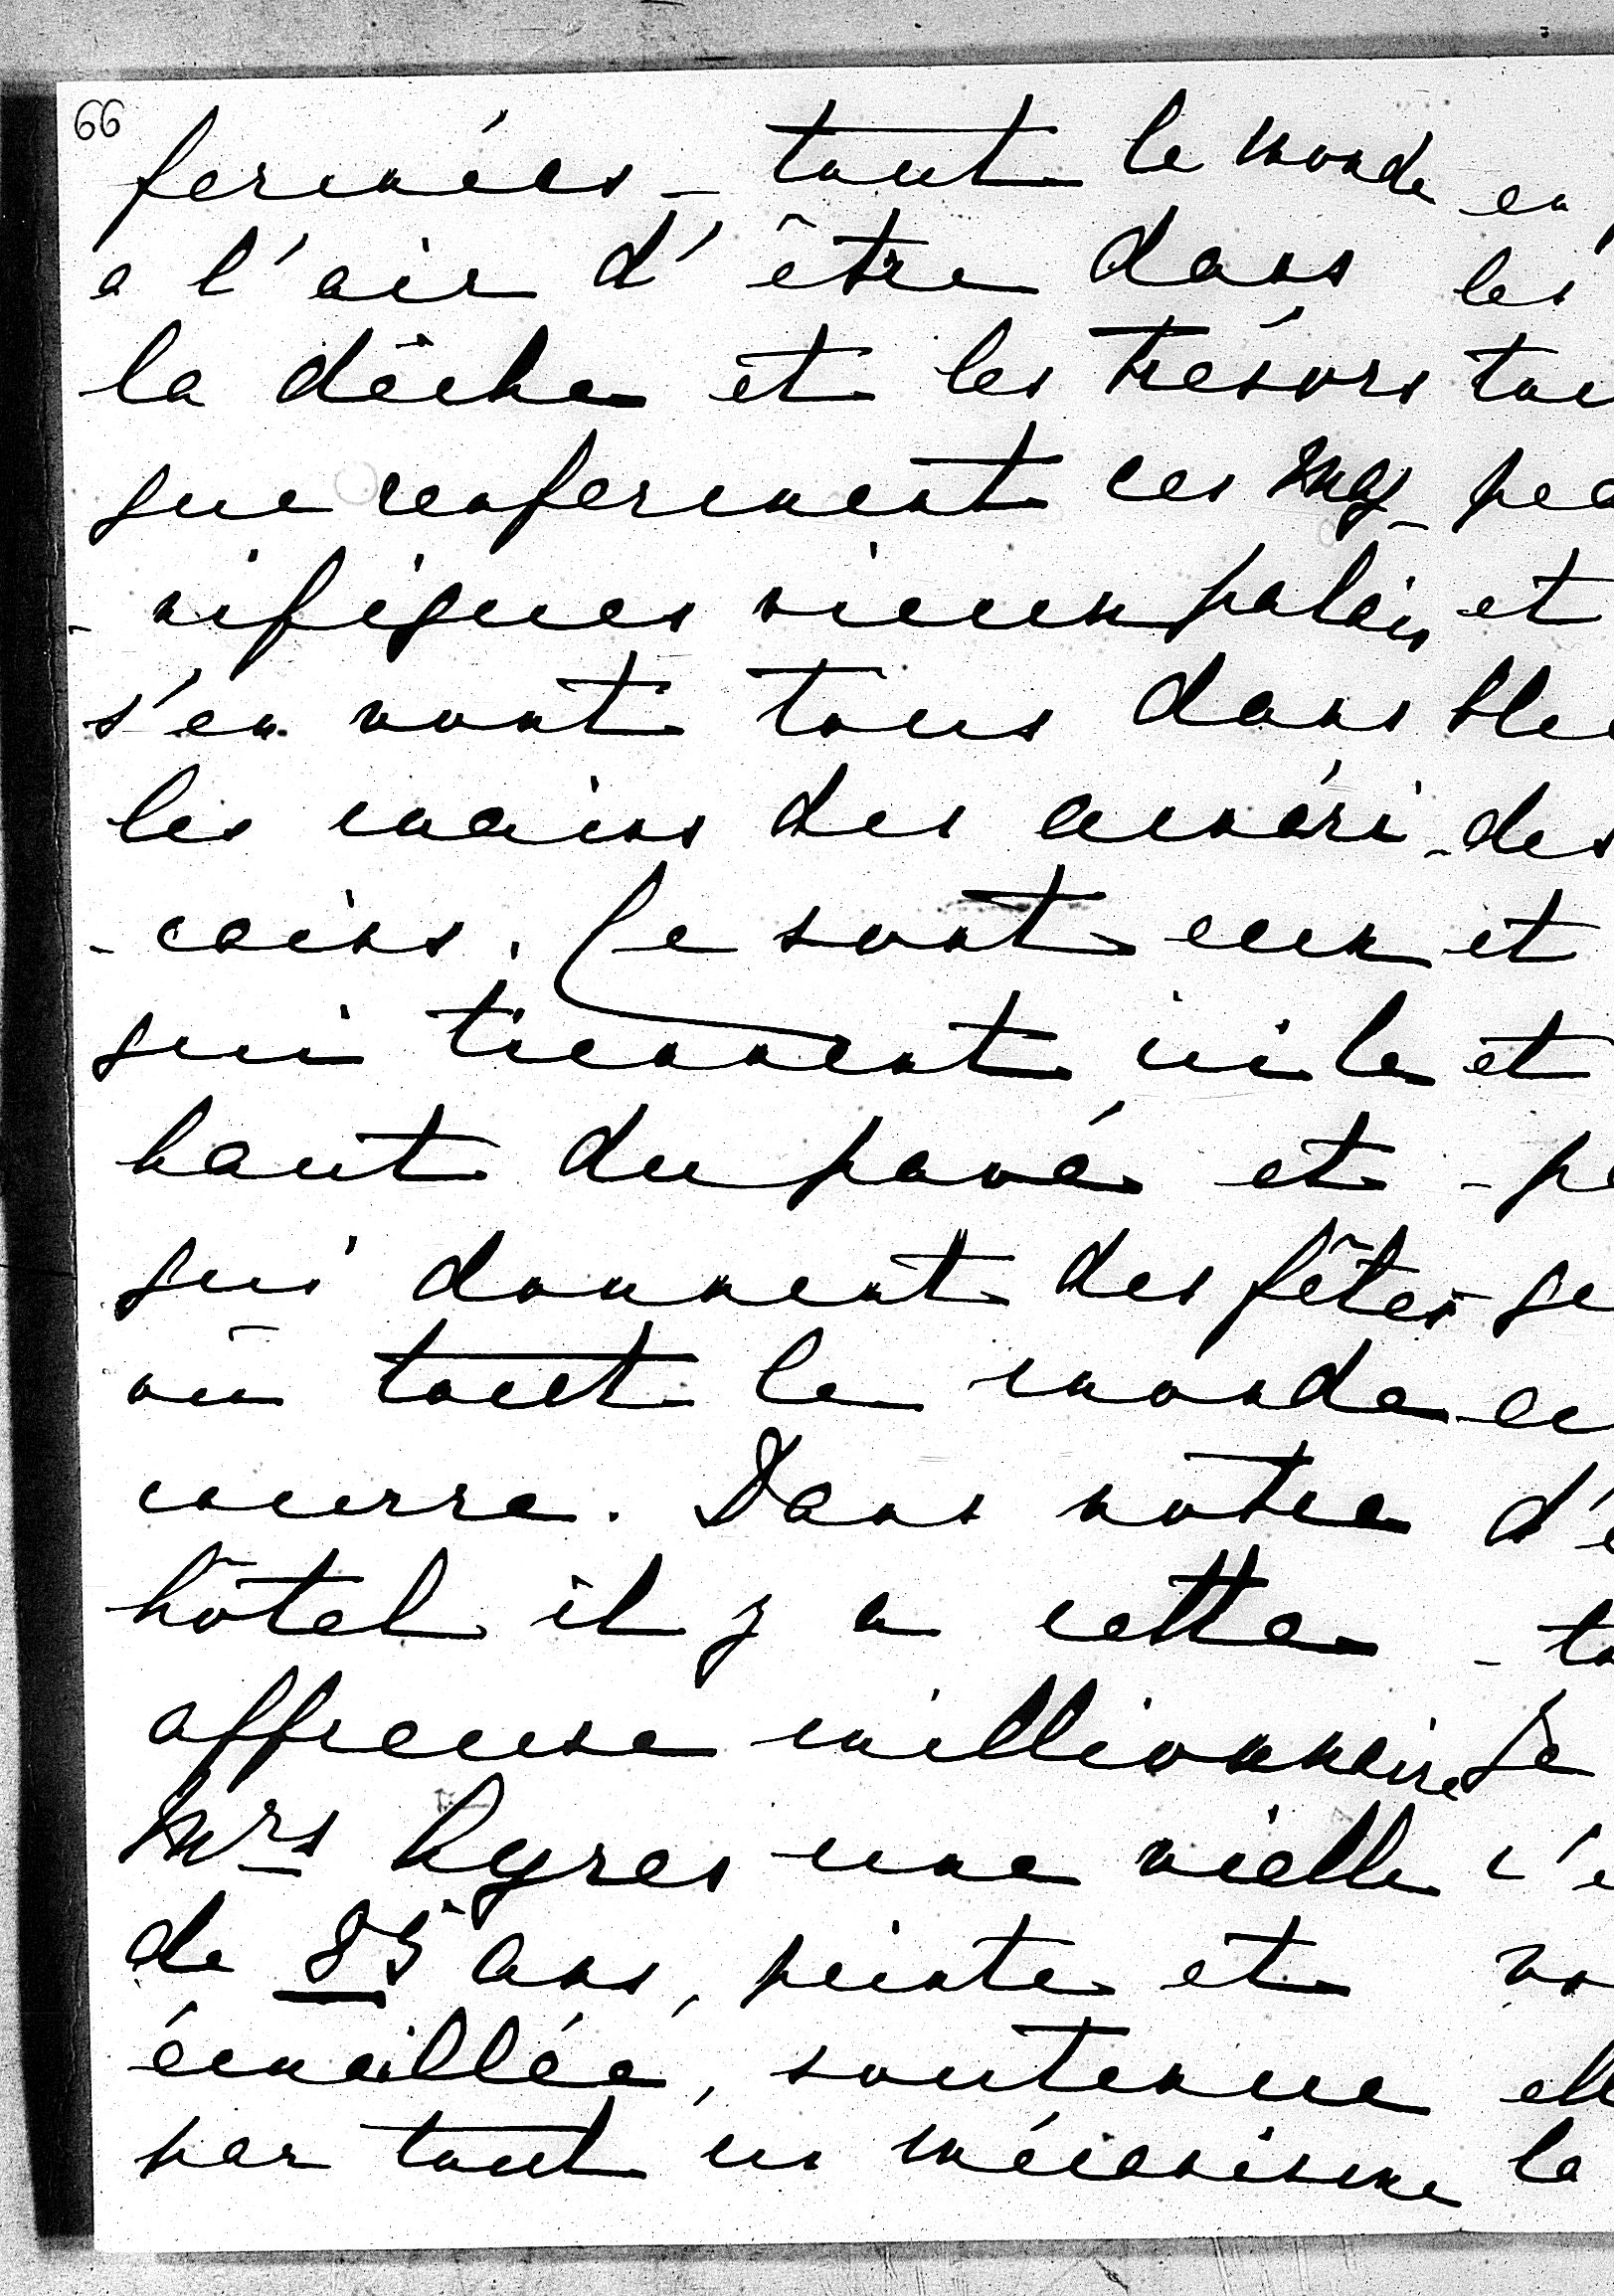 66
fermées – tout le monde en
a l'air d'être dans les
la dêche et les trésors tou
que renferment ces mag- pea
-nifiques vieux palais et
s'en vont tous dans ble
les mains des améri- des
-cains. Ce sont eux et
qui tiennent ici le et
haut du pavé et - pe
qui donnent des fêtes - ge
où tout le monde en
courre. Dans notre d'e
hôtel il y a cette - to
affreuse millionnaire Je
Mrs Kyres une vielle c'e
de 85 ans, peinte et vo
émaillée, soutenue ell
par tout un mécanisme la